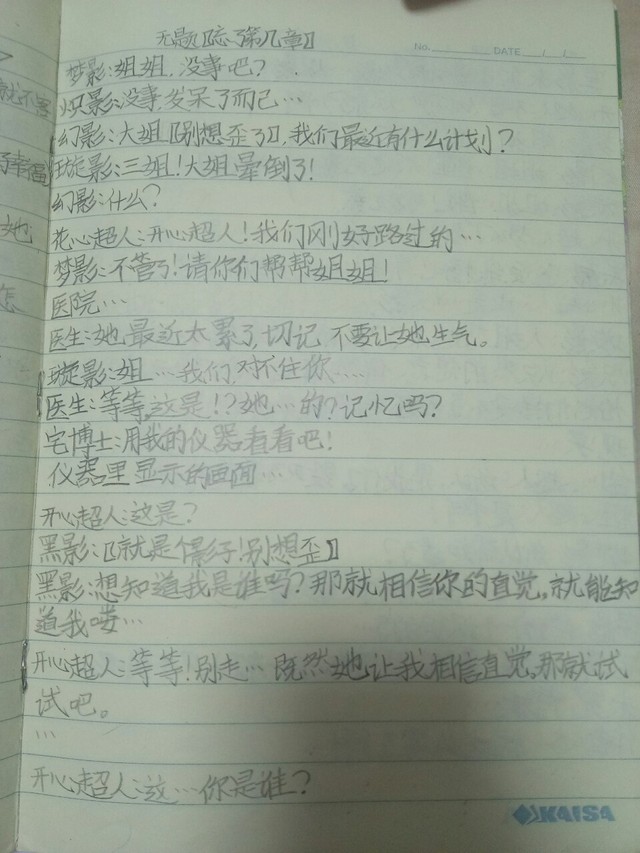 无题〖忘了第几章〗
No.
DATE / /
梦影:姐姐,没事吧?
炽影:没事,发呆了而已…
幻影:大姐〖别想歪了〗,我们最近有什么计划?
璇影:三姐!大姐晕倒了!
幻影:什么?
花心超人:开心超人!我们刚好路过的…
梦影:不管了!请你们帮帮姐姐!
医院…
医生:她最近太累了,切记 不要让她生气。
璇影:姐……我们,对不住你……
医生:等等,这是!?她…的?记忆吗?
宅博士:用我的仪器看看吧!
仪器里显示的画面…
开心超人:这是?
黑影:〖就是个影子!别想歪〗
黑影:想知道我是谁吗?那就相信你的直觉,就能知
道我喽…
开心超人:等等!别走…既然她让我相信直觉,那就试
试吧。
…
开心超人:这…你是谁?
KAISA
就不
幸福
她
怎